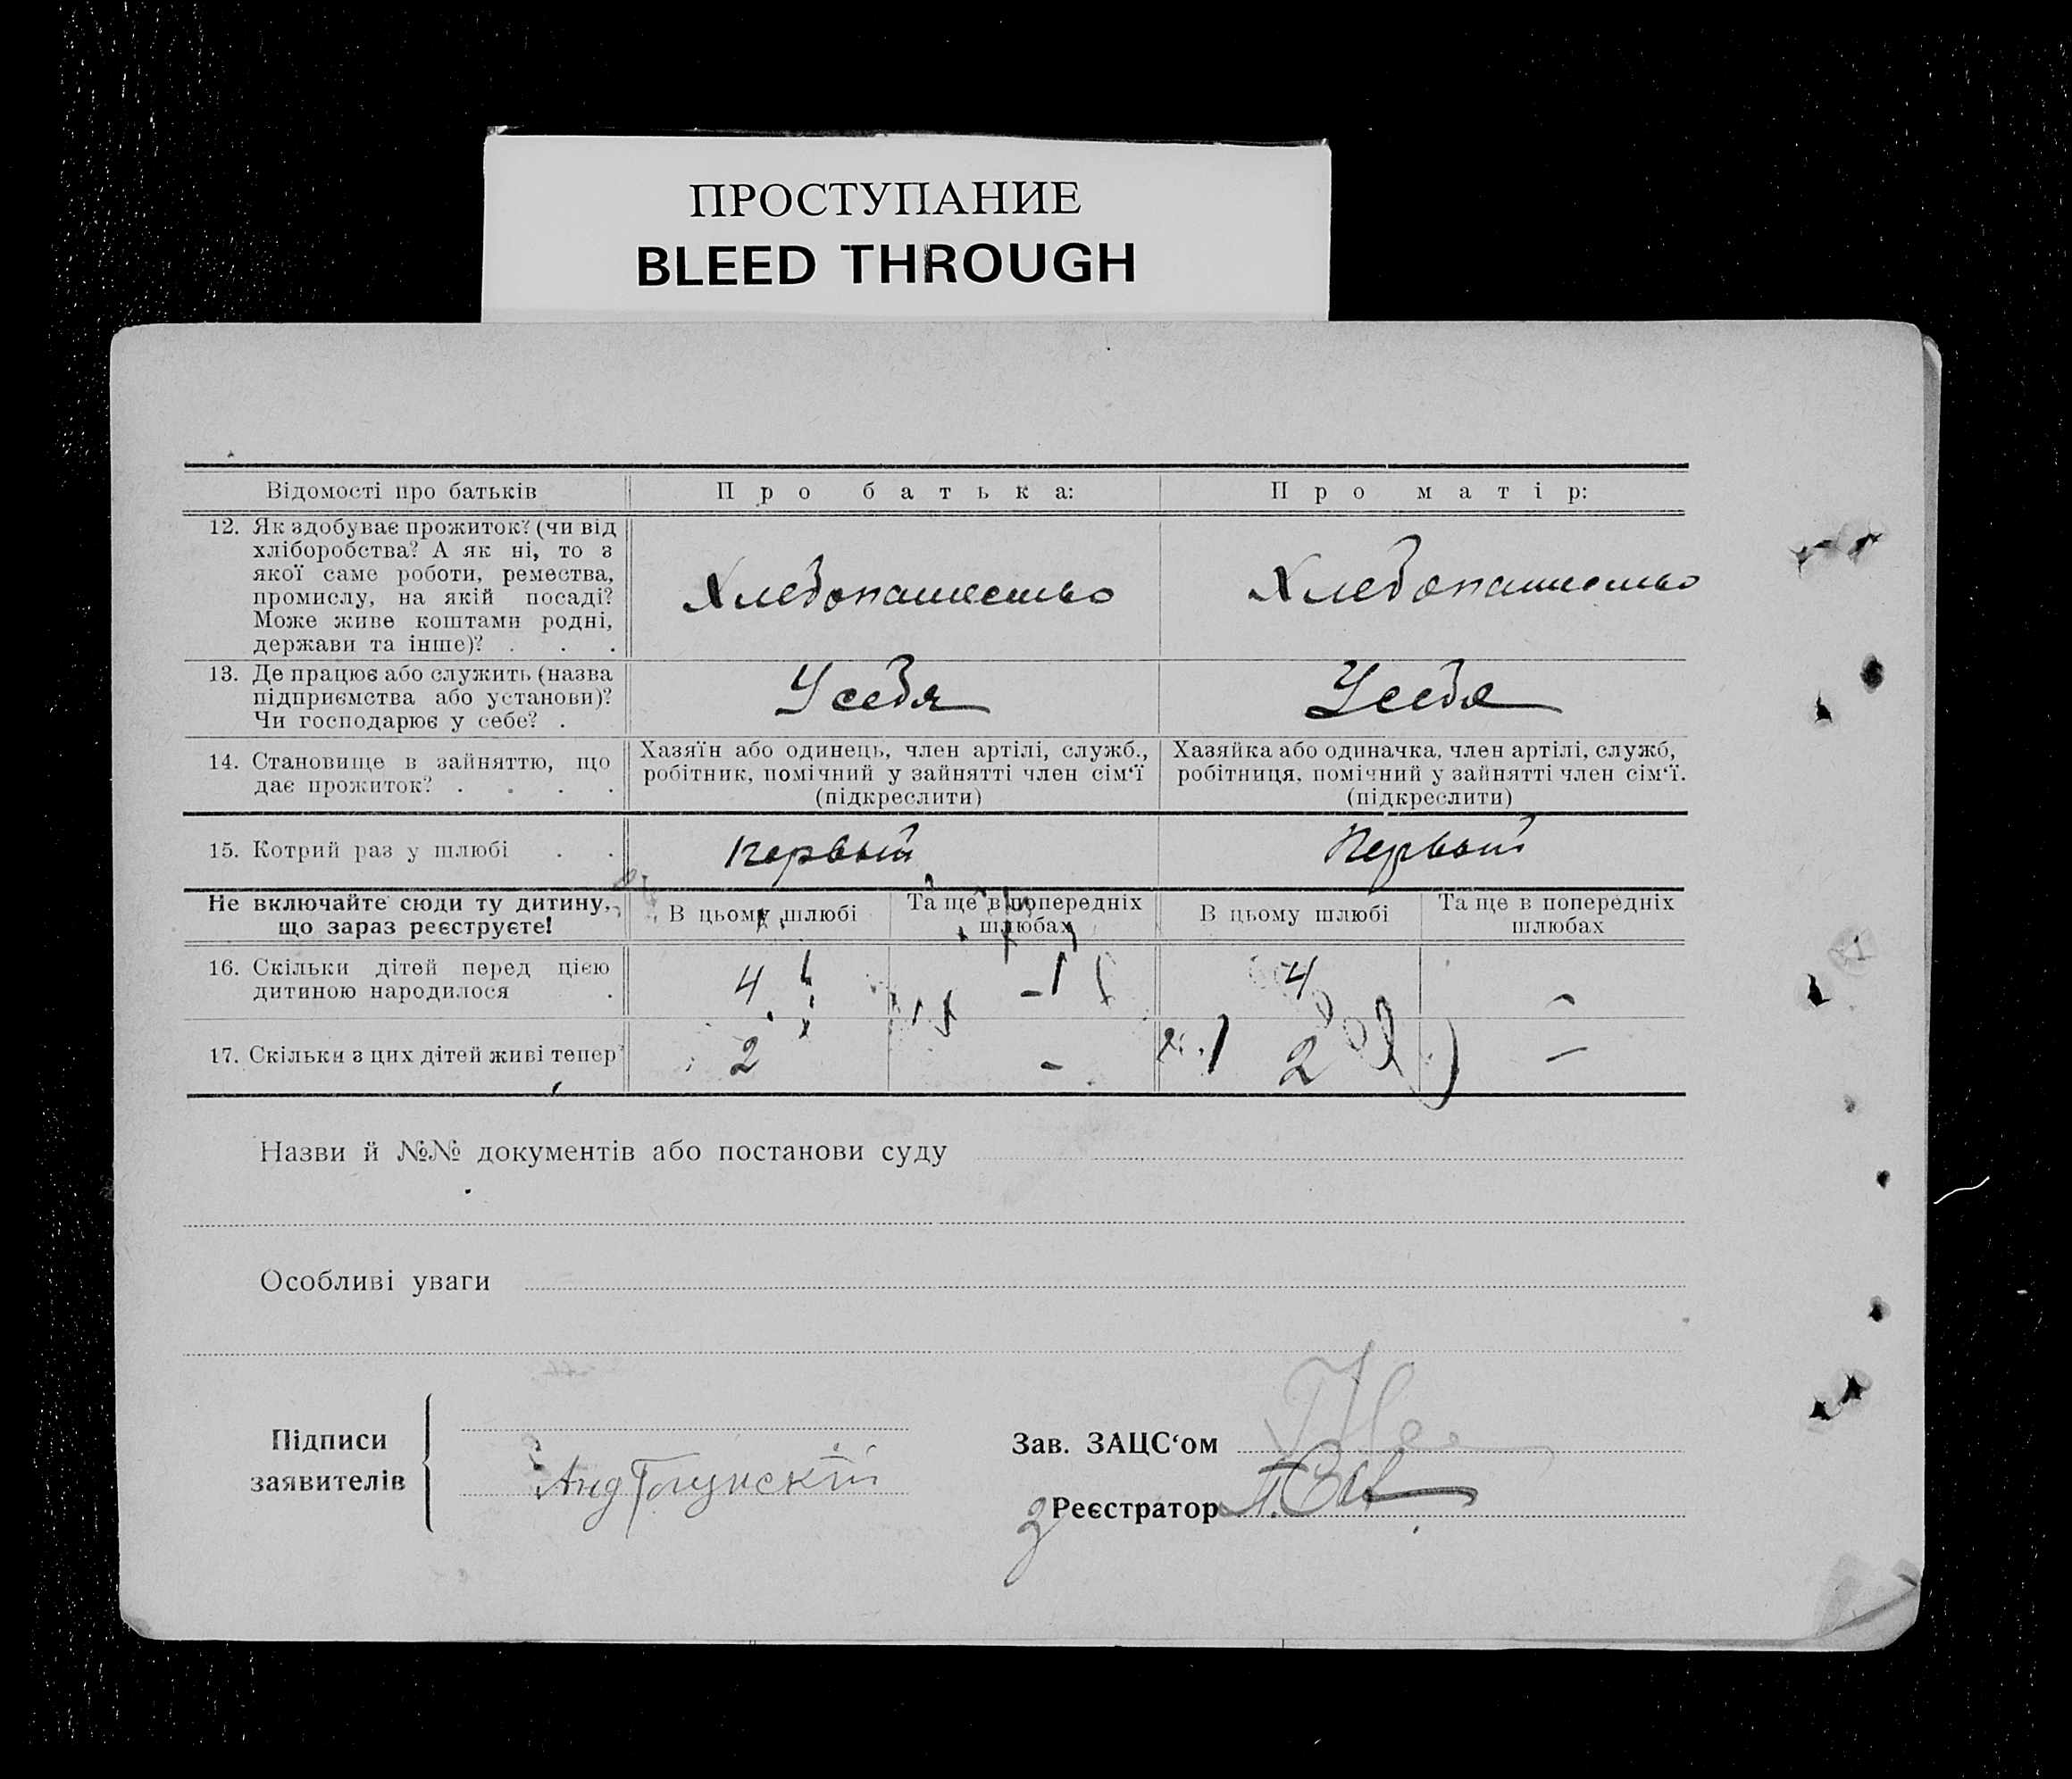 ПРОСТУПАНИЕ
BLEED THROUGH
Відомості про батьків
Про батька:
Про матір:
12. Як здобуває прожиток? (чи від
хліборобства? А як ні, то з
якої саме роботи, ремества,
промислу, на якій посаді?
Може живе коштами родні,
держави та інше)? . . .
Хлебопашество
Хлебопашество
13. Де працює або служить (назва
підприємства або установи)?
Чи господарює у себе? .
У себя
У себя
14. Становище в зайняттю, що
дає прожиток? . . . .
Хазяїн або одинець, член артілі, служб.,
робітник, помічний у зайнятті член сім‘ї
(підкреслити)
Хазяйка або одиначка, член артілі, служб,
робітниця, помічний у зайнятті член сім‘ї.
(підкреслити)
15. Котрий раз у шлюбі . .
первый
Первый
Не включайте сюди ту дитину,
що зараз реєструєте!
В цьому шлюбі
Та ще в попередніх
шлюбах
В цьому шлюбі
Та ще в попередніх
шлюбах
16. Скільки дітей перед цією
дитиною народилося .
4
–
4
–
17. Скільки з цих дітей живі тепер
2
–
2
–
Назви й №№ документів або постанови суду
Особливі уваги
Підписи
заявителів
Зав. ЗАЦС‘ом
Реєстратор